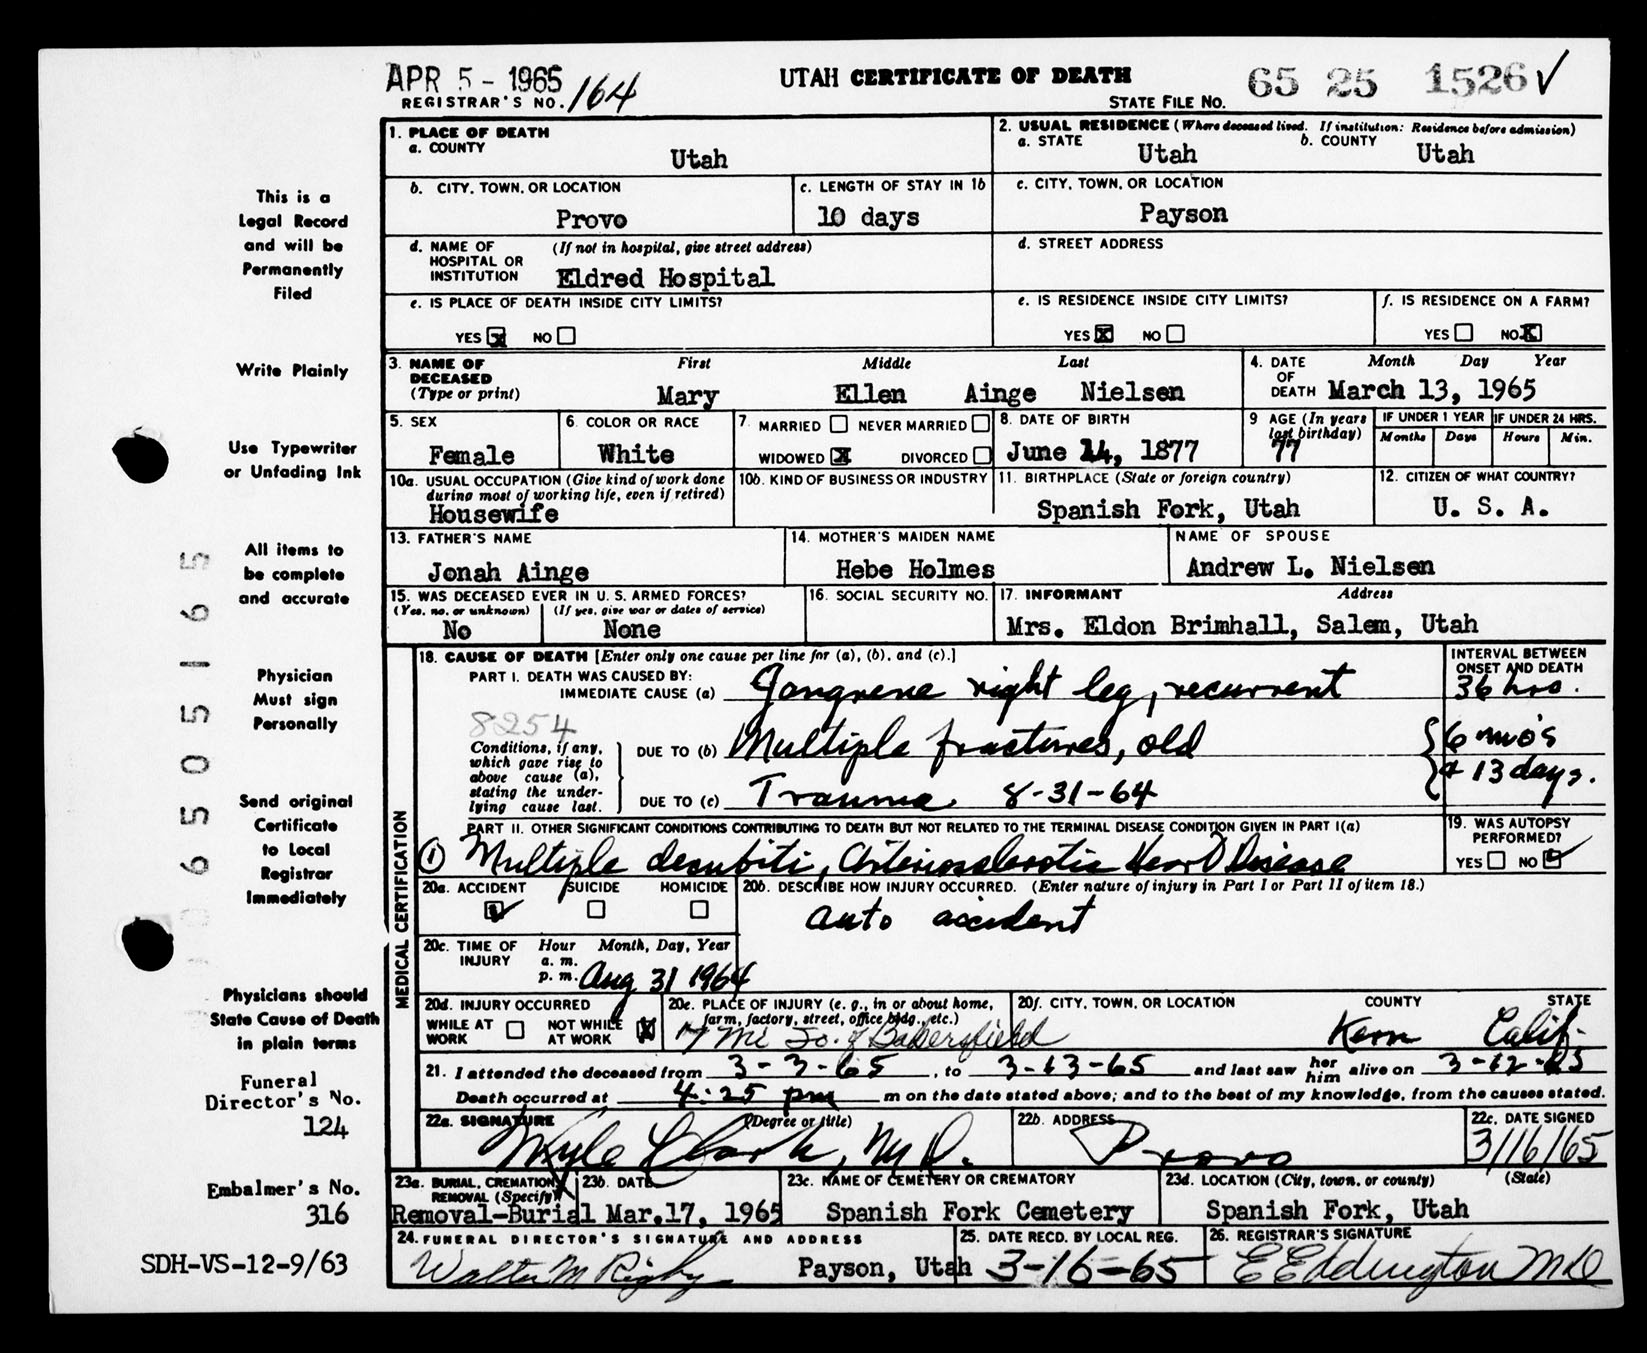 APR 5 - 1965
REGISTRAR'S NO. 164
UTAH CERTIFICATE OF DEATH
STATE FILE NO. 65 25 1526 ✓
This is a
Legal Record
and will be
Permanently
Filed
Write Plainly
Use Typewriter
or Unfading Ink
All items to
be complete
and accurate
Physician
Must sign
Personally
Send original
Certificate
to Local
Registrar
Immediately
Physicians should
State Cause of Death
in plain terms
Funeral
Director's No.
124
Embalmer's No.
316
SDH-VS-12-9/63
6505165
1. PLACE OF DEATH
a. COUNTY
Utah
2. USUAL RESIDENCE (Where deceased lived. If institution: Residence before admission)
a. STATE Utah b. COUNTY Utah
b. CITY, TOWN, OR LOCATION
Provo
c. LENGTH OF STAY IN 1b
10 days
c. CITY, TOWN, OR LOCATION
Payson
d. NAME OF HOSPITAL OR INSTITUTION (If not in hospital, give street address)
Eldred Hospital
d. STREET ADDRESS
e. IS PLACE OF DEATH INSIDE CITY LIMITS?
YES ☒ NO ☐
e. IS RESIDENCE INSIDE CITY LIMITS?
YES ☒ NO ☐
f. IS RESIDENCE ON A FARM?
YES ☐ NO ☒
3. NAME OF DECEASED (Type or print)
First Middle Last
Mary Ellen Ainge Nielsen
4. DATE OF DEATH Month Day Year
March 13, 1965
5. SEX
Female
6. COLOR OR RACE
White
7. MARRIED ☐ NEVER MARRIED ☐
WIDOWED ☒ DIVORCED ☐
8. DATE OF BIRTH
June 14, 1877
9 AGE (In years last birthday)
77
IF UNDER 1 YEAR
Months Days
IF UNDER 24 HRS.
Hours Min.
10a. USUAL OCCUPATION (Give kind of work done during most of working life, even if retired)
Housewife
10b. KIND OF BUSINESS OR INDUSTRY
11. BIRTHPLACE (State or foreign country)
Spanish Fork, Utah
12. CITIZEN OF WHAT COUNTRY?
U. S. A.
13. FATHER'S NAME
Jonah Ainge
14. MOTHER'S MAIDEN NAME
Hebe Holmes
NAME OF SPOUSE
Andrew L. Nielsen
15. WAS DECEASED EVER IN U. S. ARMED FORCES?
(Yes, no, or unknown) (If yes, give war or dates of service)
No None
16. SOCIAL SECURITY NO.
17. INFORMANT Address
Mrs. Eldon Brimhall, Salem, Utah
MEDICAL CERTIFICATION
18. CAUSE OF DEATH [Enter only one cause per line for (a), (b), and (c).]
INTERVAL BETWEEN ONSET AND DEATH
PART I. DEATH WAS CAUSED BY:
IMMEDIATE CAUSE (a) Gangrene right leg, recurrent 36 hrs.
8254
Conditions, if any, which gave rise to above cause (a), stating the underlying cause last.
DUE TO (b) Multiple fractures, old 6 mo's
DUE TO (c) Trauma 8-31-64 + 13 days.
PART II. OTHER SIGNIFICANT CONDITIONS CONTRIBUTING TO DEATH BUT NOT RELATED TO THE TERMINAL DISEASE CONDITION GIVEN IN PART I(a)
① Multiple decubiti, Arteriosclerotic Heart Disease
19. WAS AUTOPSY PERFORMED?
YES ☐ NO ☑
20a. ACCIDENT SUICIDE HOMICIDE
☑ ☐ ☐
20b. DESCRIBE HOW INJURY OCCURRED. (Enter nature of injury in Part I or Part II of item 18.)
auto accident
20c. TIME OF INJURY Hour Month, Day, Year
a. m.
p. m. Aug 31 1964
20d. INJURY OCCURRED
WHILE AT WORK ☐ NOT WHILE AT WORK ☒
20e. PLACE OF INJURY (e. g., in or about home, farm, factory, street, office bldg., etc.)
7 Mi So. of Bakersfield
20f. CITY, TOWN, OR LOCATION COUNTY STATE
Kern Calif.
21. I attended the deceased from 3-3-65, to 3-13-65 and last saw her him alive on 3-12-65
Death occurred at 4:25 pm m on the date stated above; and to the best of my knowledge, from the causes stated.
22a. SIGNATURE (Degree or title)
Clark, M.D.
22b. ADDRESS
Provo
22c. DATE SIGNED
3/16/65
23a. BURIAL, CREMATION, REMOVAL (Specify)
Removal-Burial
23b. DATE
Mar.17, 1965
23c. NAME OF CEMETERY OR CREMATORY
Spanish Fork Cemetery
23d. LOCATION (City, town, or county) (State)
Spanish Fork, Utah
24. FUNERAL DIRECTOR'S SIGNATURE AND ADDRESS
Walter M Rigby Payson, Utah
25. DATE RECD. BY LOCAL REG.
3-16-65
26. REGISTRAR'S SIGNATURE
E Eddington MD